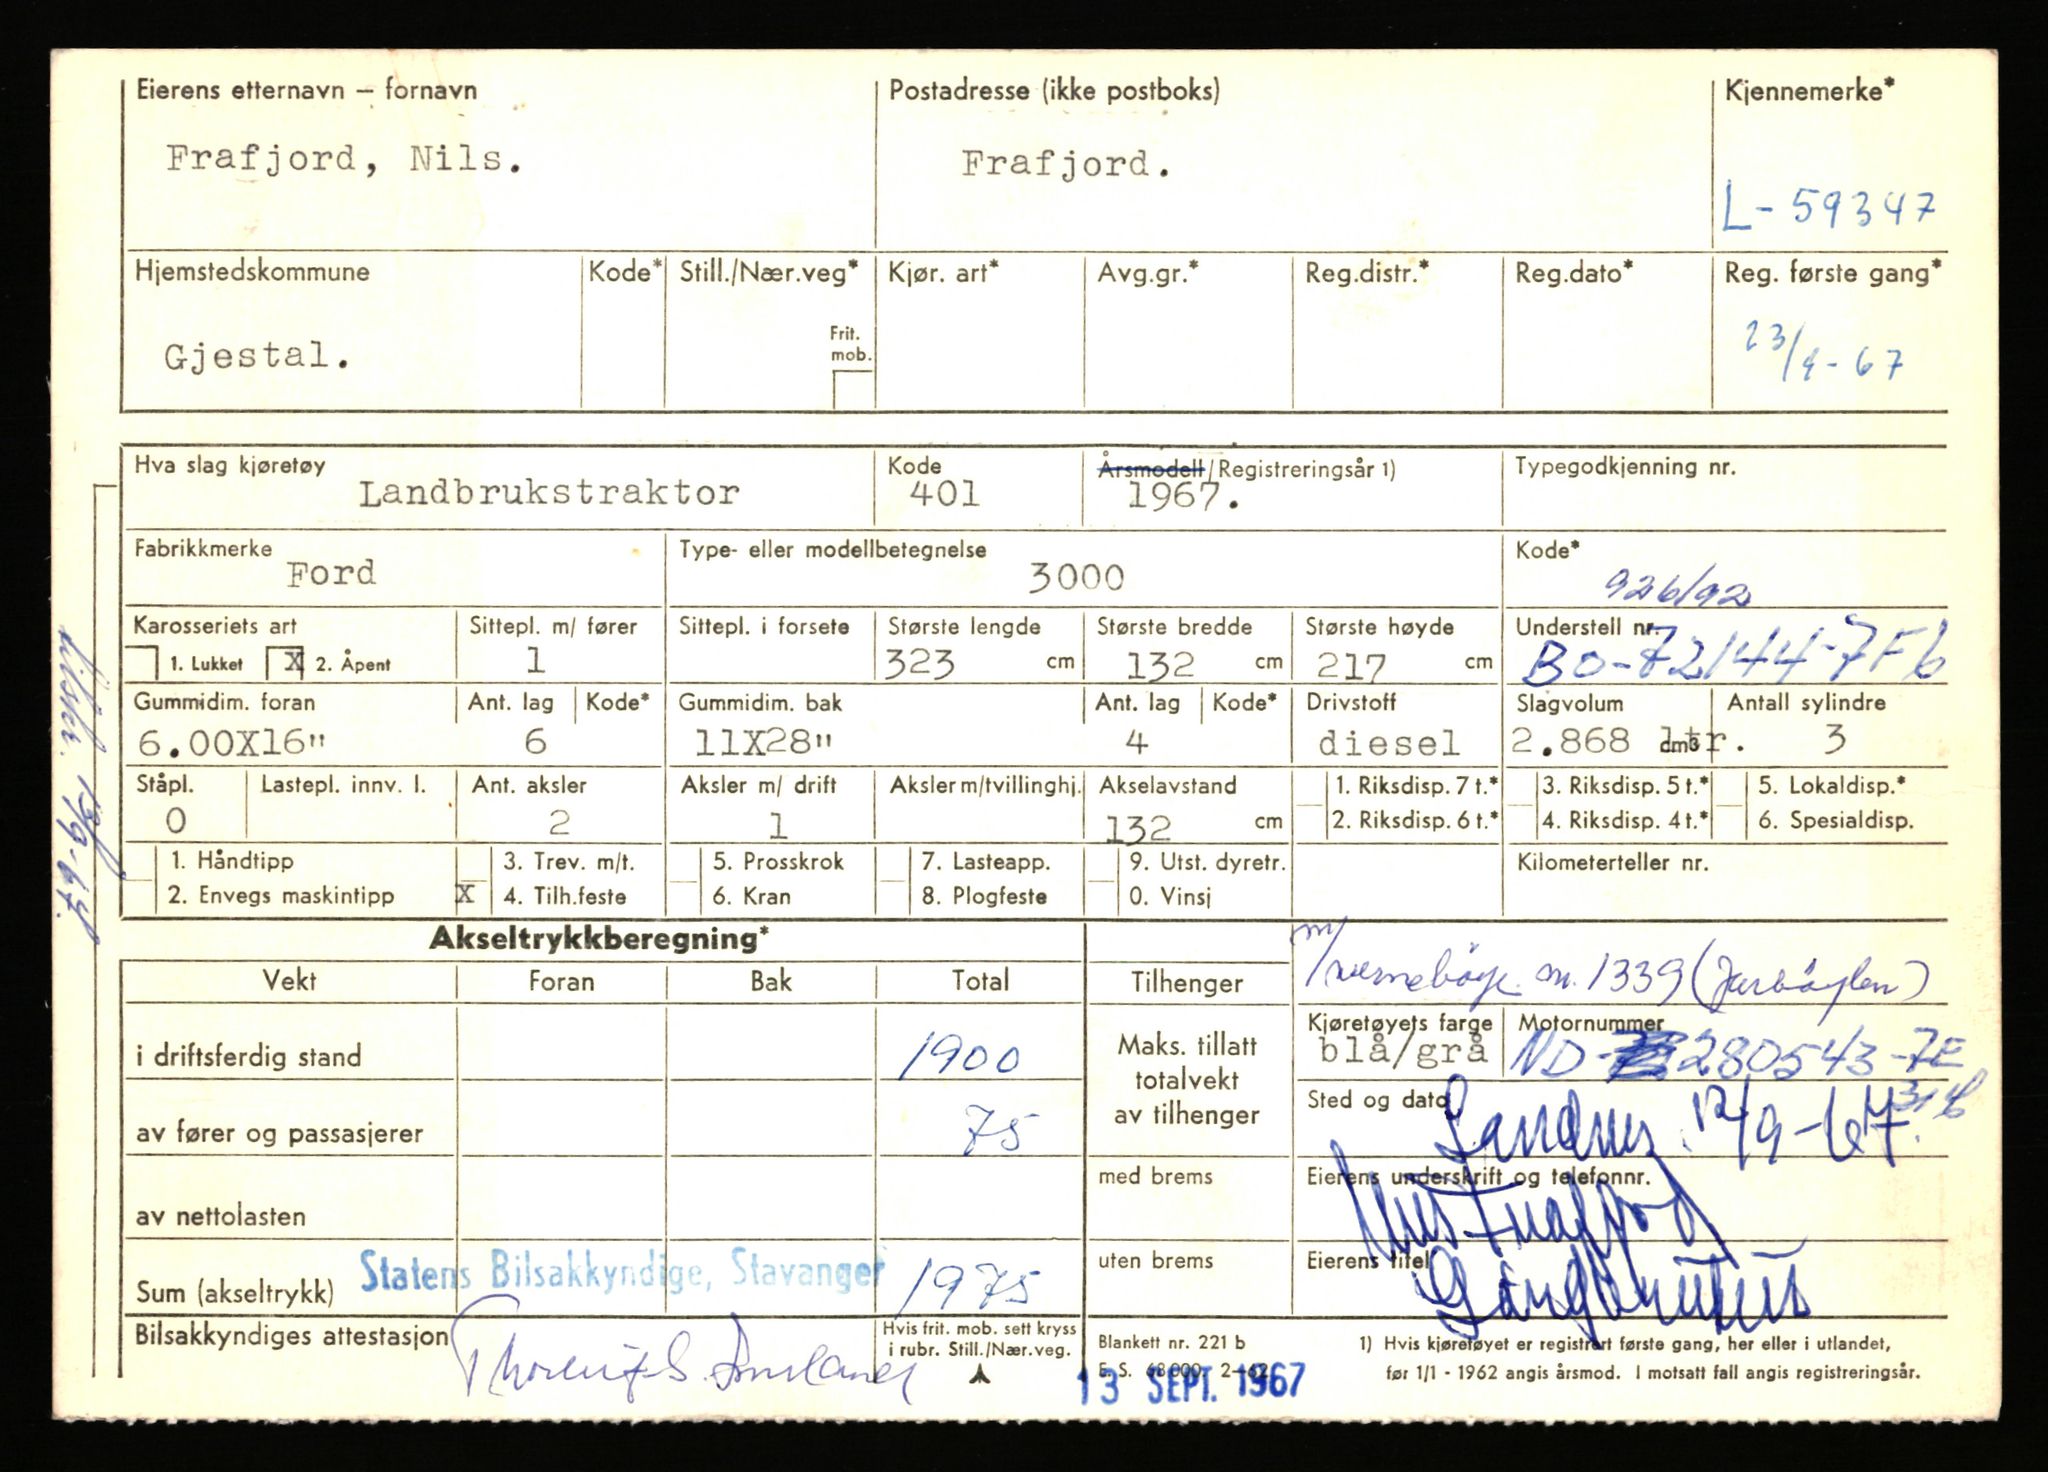 Eierens etternavn – fornavn
Frafjord, Nils.
Postadresse (ikke postboks)
Frafjord.
Kjennemerke*
L-59347
Hjemstedskommune
Gjestal.
Kode*
Still./Nær.veg*
Frit.
mob.
Kjør. art*
Avg.gr.*
Reg.distr.*
Reg.dato*
Reg. første gang*
Hva slag kjøretøy
Landbrukstraktor
Kode
401
Årsmodell/Registreringsår 1)
1967.
Typegodkjenning nr.
Fabrikkmerke
Ford
Type- eller modellbetegnelse
3000
Kode*
926/92
Karosseriets art
1. Lukket X 2. Åpent
Sittepl. m/ fører
1
Sittepl. i forsete
Største lengde
323 cm
Største bredde
132 cm
Største høyde
217 cm
Understell nr.
BO-72144-7F6
Gummidim. foran
6.00X16"
Ant. lag
6
Kode*
Gummidim. bak
11X28"
Ant. lag
4
Kode*
Drivstoff
diesel
Slagvolum
2.868 dm3 ltr.
Antall sylindre
3
Ståpl.
0
Lastepl. innv. l.
Ant. aksler
2
Aksler m/ drift
1
Aksler m/tvillinghj.
Akselavstand
132 cm
1. Riksdisp. 7 t.*
2. Riksdisp. 6 t.*
3. Riksdisp. 5 t.*
4. Riksdisp. 4 t.*
5. Lokaldisp.*
6. Spesialdisp.
1. Håndtipp
2. Envegs maskintipp
3. Trev. m/t.
X 4. Tilh.feste
5. Prosskrok
6. Kran
7. Lasteapp.
8. Plogfeste
9. Utst. dyretr.
0. Vinsj
Kilometerteller nr.
Akseltrykkberegning*
Vekt Foran Bak Total
i driftsferdig stand 1900
av fører og passasjerer 75
av nettolasten
Sum (akseltrykk) 1975
Statens Bilsakkyndige, Stavanger
Bilsakkyndiges attestasjon
Hvis frit. mob. sett kryss
i rubr. Still./Nær.veg.
Tilhenger
Maks. tillatt
totalvekt
av tilhenger
med brems
uten brems
m/ vernebøyle nr. 1339 (Jarbøylen)
Kjøretøyets farge
blå/grå
Motornummer
ND- 280543-7E
Sted og dato
Sandnes 12/9-67.
Eierens underskrift og telefonnr.
Nils Frafjord
Eierens titel
Gårdbruker
Blankett nr. 221 b
E. S. 68 000. 2–62
13 SEPT. 1967
1) Hvis kjøretøyet er registrert første gang, her eller i utlandet,
før 1/1 - 1962 angis årsmod. I motsatt fall angis registreringsår.